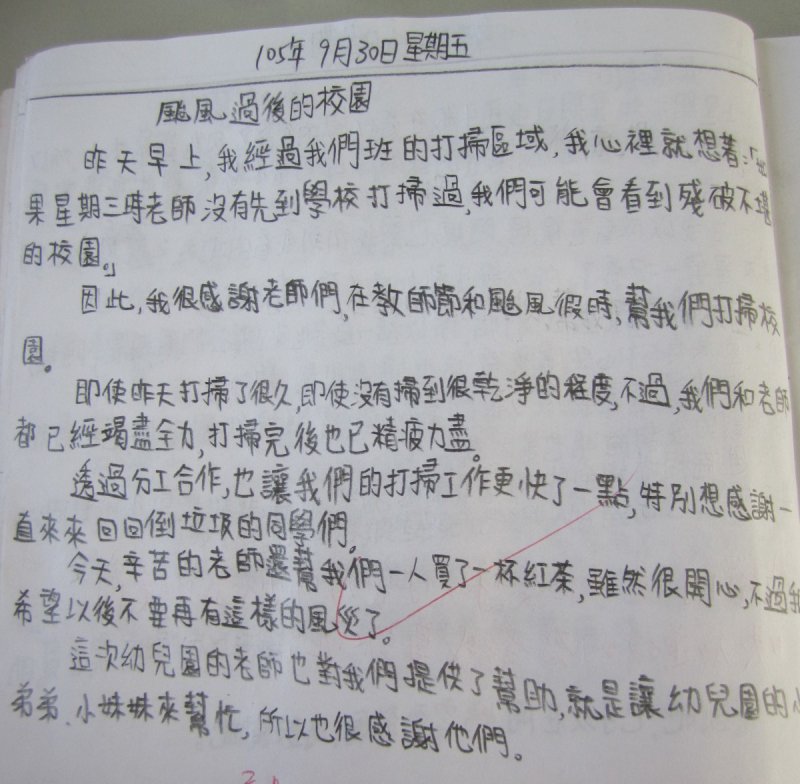 105年9月30日星期五
颱風過後的校園
昨天早上,我經過我們班的打掃區域,我心裡就想著:「如
果星期三時老師沒有先到學校打掃過,我們可能會看到殘破不堪
的校園。」
因此,我很感謝老師們,在教師節和颱風假時,幫我們打掃校
園。
即使昨天打掃了很久,即使沒有掃到很乾淨的程度,不過,我們和老師
都已經竭盡全力,打掃完後也已精疲力盡。
透過分工合作,也讓我們的打掃工作更快了一點,特別想感謝一
直來來回回倒垃圾的同學們。
今天,辛苦的老師還幫我們一人買了一杯紅茶,雖然很開心,不過我
希望以後不要再有這樣的風災了。
這次幼兒園的老師也對我們提供了幫助,就是讓幼兒園的小
弟弟、小妹妹來幫忙,所以也很感謝他們。